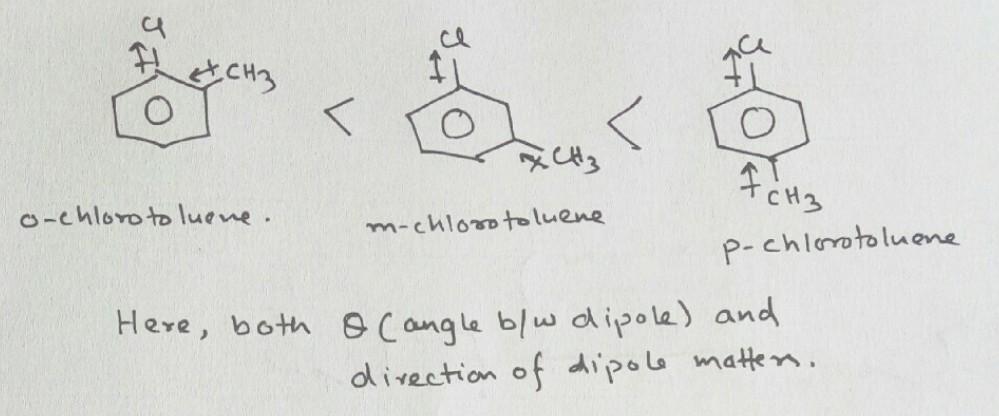 Cl Cl Cl
CH3 < CH3 < CH3
o-chlorotoluene. m-chlorotoluene p-chlorotoluene
Here, both θ (angle b/w dipole) and
direction of dipole matters.